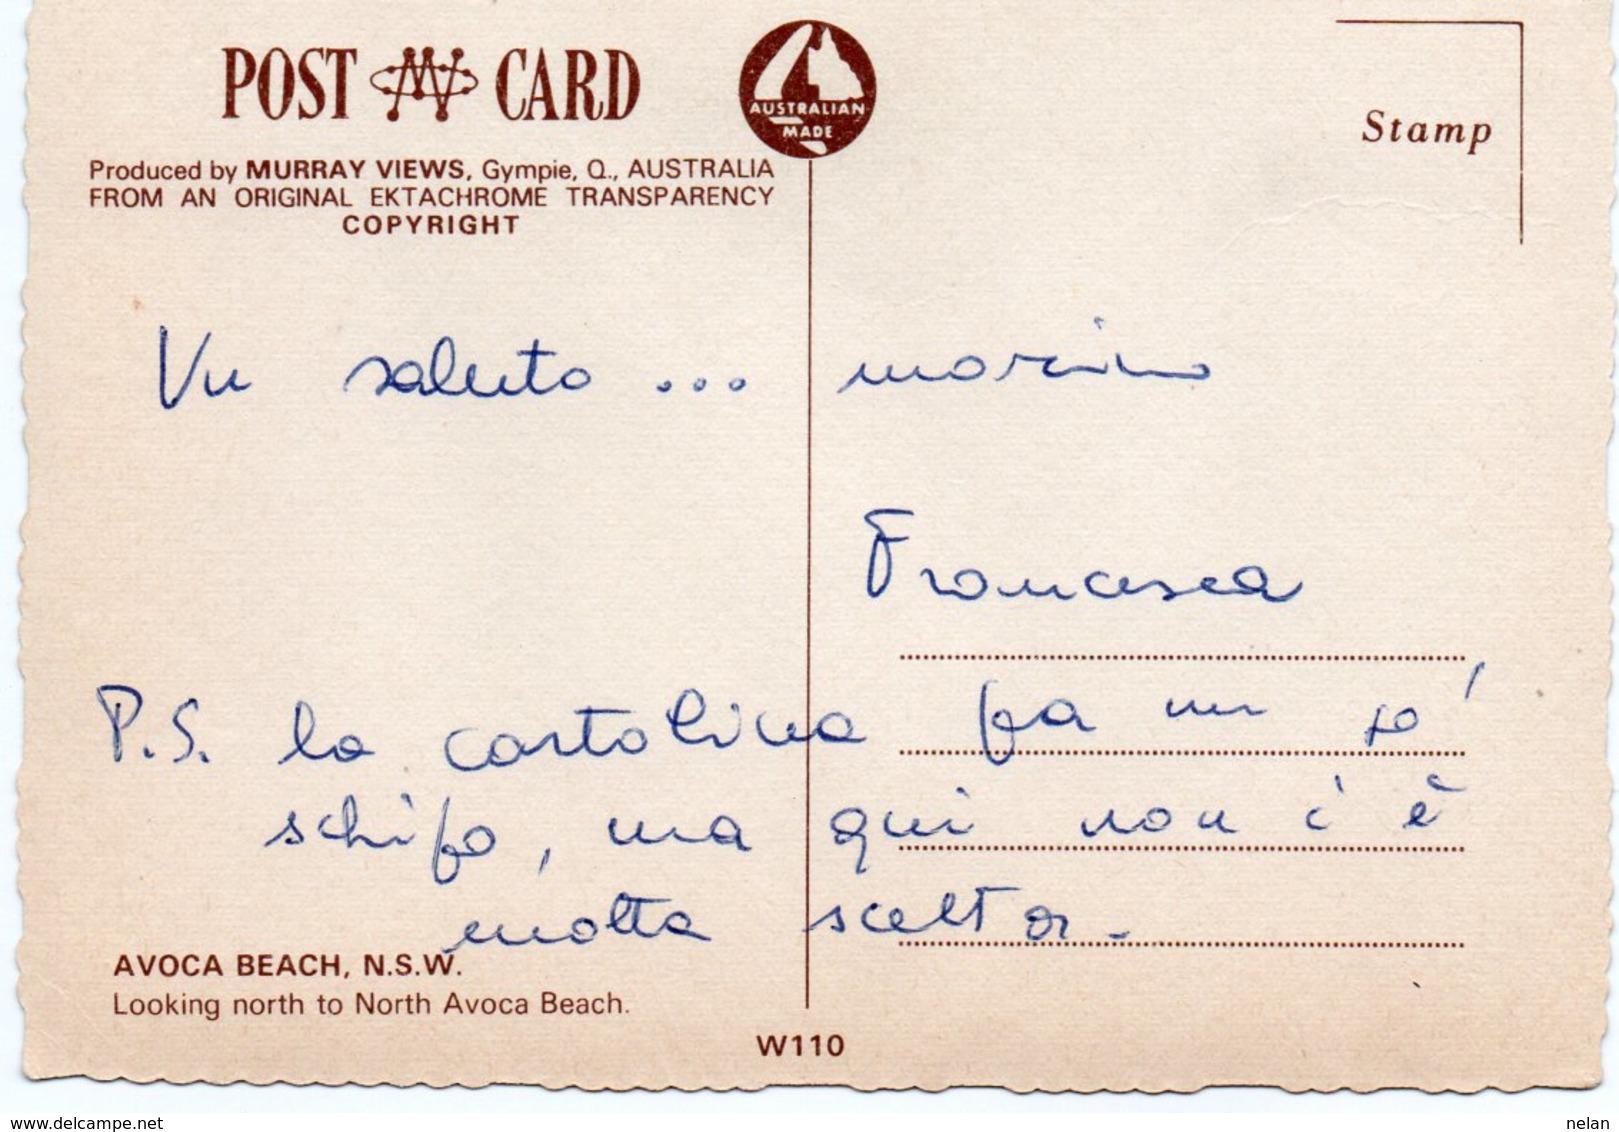 POST CARD
AUSTRALIAN
MADE
Stamp
Produced by MURRAY VIEWS, Gympie, Q., AUSTRALIA
FROM AN ORIGINAL EKTACHROME TRANSPARENCY
COPYRIGHT
Un saluto ... marino
Francesca
P.S. la cartolina fa un po'
schifo, ma qui non c'è
molta scelta.
AVOCA BEACH, N.S.W.
Looking north to North Avoca Beach.
W110
www.delcampe.net
nelan